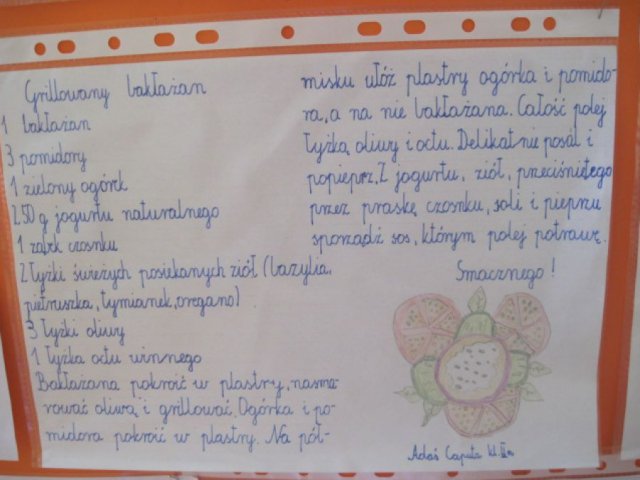 Grillowany bakłażan
1 bakłażan
3 pomidory
1 zielony ogórk
250 g jogurtu naturalnego
1 ząbk czosnku
2 łyżki świeżych posiekanych ziół (bazylia,
pietruszka, tymianek, oregano)
3 łyżki oliwy
1 łyżka octu winnego
Bakłażana pokroić w plastry, nasma-
rować oliwą i grillować. Ogórka i po-
midora pokroić w plastry. Na pół-
misku ułóż plastry ogórka i pomido-
ra, a na nie bakłażana. Całość polej
łyżką oliwy i octu. Delikatnie posól i
popieprz. Z jogurtu, ziół, przeciśniętego
przez praskę czosnku, soli i pieprzu
sporządź sos, którym polej potrawę.
Smacznego!
Adaś Caputa kl.